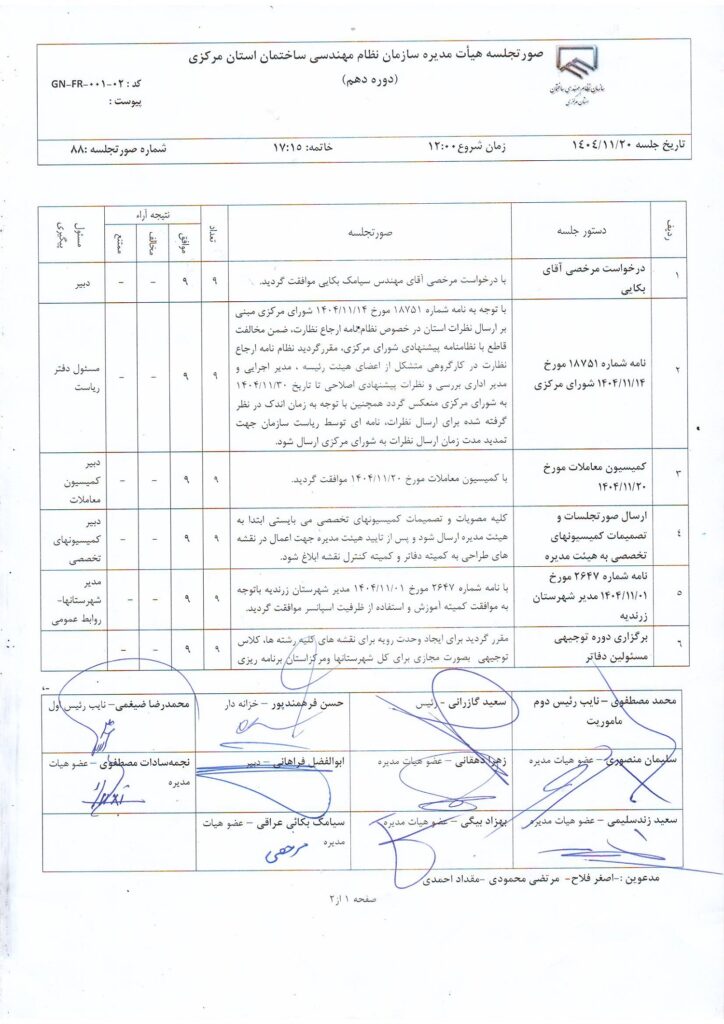 صورتجلسه هیأت مدیره سازمان نظام مهندسی ساختمان استان مرکزی
(دوره دهم)
کد : GN-FR-۰۰۱-۰۲
پیوست :
سازمان نظام مهندسی ساختمان
استان مرکزی
تاریخ جلسه ۱۴۰۴/۱۱/۲۰ زمان شروع ۱۲:۰۰ خاتمه: ۱۷:۱۵ شماره صورتجلسه :۸۸
ردیف دستور جلسه صورتجلسه تعداد نتیجه آراء مسئول پیگیری
موافق مخالف ممتنع
۱ درخواست مرخصی آقای
بکایی
با درخواست مرخصی آقای مهندس سیامک بکایی موافقت گردید.
۹ ۹ – – دبیر
۲ نامه شماره ۱۸۷۵۱ مورخ
۱۴۰۴/۱۱/۱۴ شورای مرکزی
با توجه به نامه شماره ۱۸۷۵۱ مورخ ۱۴۰۴/۱۱/۱۴ شورای مرکزی مبنی
بر ارسال نظرات استان در خصوص نظام‌نامه ارجاع نظارت، ضمن مخالفت
قاطع با نظامنامه پیشنهادی شورای مرکزی، مقررگردید نظام نامه ارجاع
نظارت در کارگروهی متشکل از اعضای هیئت رئیسه ، مدیر اجرایی و
مدیر اداری بررسی و نظرات پیشنهادی اصلاحی تا تاریخ ۱۴۰۴/۱۱/۳۰
به شورای مرکزی منعکس گردد همچنین با توجه به زمان اندک در نظر
گرفته شده برای ارسال نظرات، نامه ای توسط ریاست سازمان جهت
تمدید مدت زمان ارسال نظرات به شورای مرکزی ارسال شود.
۹ ۹ – – مسئول دفتر
ریاست
۳ کمیسیون معاملات مورخ
۱۴۰۴/۱۱/۲۰
با کمیسیون معاملات مورخ ۱۴۰۴/۱۱/۲۰ موافقت گردید.
۹ ۹ – – دبیر
کمیسیون
معاملات
۴ ارسال صورتجلسات و
تصمیمات کمیسیونهای
تخصصی به هیئت مدیره
کلیه مصوبات و تصمیمات کمیسیونهای تخصصی می بایستی ابتدا به
هیئت مدیره ارسال شود و پس از تایید هیئت مدیره جهت اعمال در نقشه
های طراحی به کمیته دفاتر و کمیته کنترل نقشه ابلاغ شود.
۹ ۹ – – دبیر
کمیسیونهای
تخصصی
۵ نامه شماره ۲۶۴۷ مورخ
۱۴۰۴/۱۱/۰۱ مدیر شهرستان
زرندیه
با نامه شماره ۲۶۴۷ مورخ ۱۴۰۴/۱۱/۰۱ مدیر شهرستان زرندیه باتوجه
به موافقت کمیته آموزش و استفاده از ظرفیت اسپانسر موافقت گردید.
۹ ۹ – – مدیر
شهرستانها-
روابط عمومی
۶ برگزاری دوره توجیهی
مسئولین دفاتر
مقرر گردید برای ایجاد وحدت رویه برای نقشه های کلیه رشته ها، کلاس
توجیهی بصورت مجازی برای کل شهرستانها ومرکزاستان برنامه ریزی
۹ ۹ – –
محمد مصطفوی – نایب رئیس دوم
ماموریت
سعید گازرانی – رئیس
حسن فرهمندپور – خزانه دار
محمدرضا ضیغمی – نایب رئیس اول
سلیمان منصوری – عضو هیات مدیره
زهرا دهقانی – عضو هیات مدیره
ابوالفضل فراهانی – دبیر
نجمه‌سادات مصطفوی – عضو هیات
مدیره
سعید زندسلیمی – عضو هیات مدیره
بهزاد بیگی – عضو هیات مدیره
سیامک بکائی عراقی – عضو هیات
مدیره
مرخصی
مدعوین :-اصغر فلاح- مرتضی محمودی -مقداد احمدی
صفحه ۱ از۲